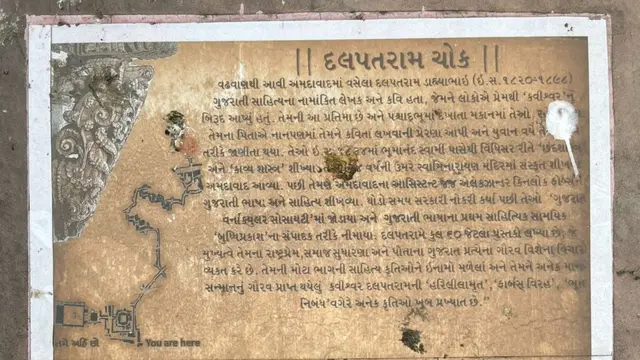 || દલપતરામ ચોક ||
વઢવાણથી આવી અમદાવાદમાં વસેલા દલપતરામ ડાહ્યાભાઇ (ઇ.સ.૧૮૨૦-૧૮૯૮)
ગુજરાતી સાહિત્યના નામાંકિત લેખક અને કવિ હતા, જેમને લોકોએ પ્રેમથી 'કવીશ્વર'નું
બિરૂદ આપ્યું હતું. તેમની આ પ્રતિમા છે અને પશ્ચાદભૂમાં દેખાતા મકાનમાં તેઓ
તેમના પિતાએ નાનપણમાં તેમને કવિતા લખવાની પ્રેરણા આપી અને યુવાન વયે
તરીકે જાણીતા થયા. તેઓ ઇ.સ. ભૂમાનંદ સ્વામી પાસેથી વિધિસર રીતે
અને 'કાવ્ય શાસ્ત્ર' શીખ્યા વર્ષની ઉંમરે સ્વામિનારાયણ મંદિરમાં સંસ્કૃત
અમદાવાદ આવ્યા. પછી તેમણે અમદાવાદના આસિસ્ટન્ટ જજ એલેકઝાન્ડર કિનલોક
ગુજરાતી ભાષા અને સાહિત્ય શીખવ્યા. થોડો સમય સરકારી નોકરી કર્યા પછી તેઓ 'ગુજરાત
વર્નાક્યુલર સોસાયટી'માં જોડાયા અને ગુજરાતી ભાષાના પ્રથમ સાહિત્યિક સામયિક
'બુધ્ધિપ્રકાશ'ના સંપાદક તરીકે નીમાયા. દલપતરામે કુલ ૬૦ જેટલા પુસ્તકો લખ્યા છે;
મુખ્યત્વે તેમના રાષ્ટ્રપ્રેમ, સમાજ સુધારણા અને પોતાના ગુજરાત પ્રત્યેના ગૌરવ વિશેના વિચારો
વ્યક્ત કરે છે. તેમની મોટા ભાગની સાહિત્ય કૃતિઓને ઇનામો મળેલાં અને તેમને અનેક માન
સન્માનનું ગૌરવ પ્રાપ્ત થયેલું. કવીશ્વર દલપતરામની 'હરિલીલામૃત', 'ફાર્બસ વિરહ', 'ભૂત
નિબંધ' વગેરે અનેક કૃતિઓ ખૂબ પ્રખ્યાત છે."
તમે અહિં છો You are here